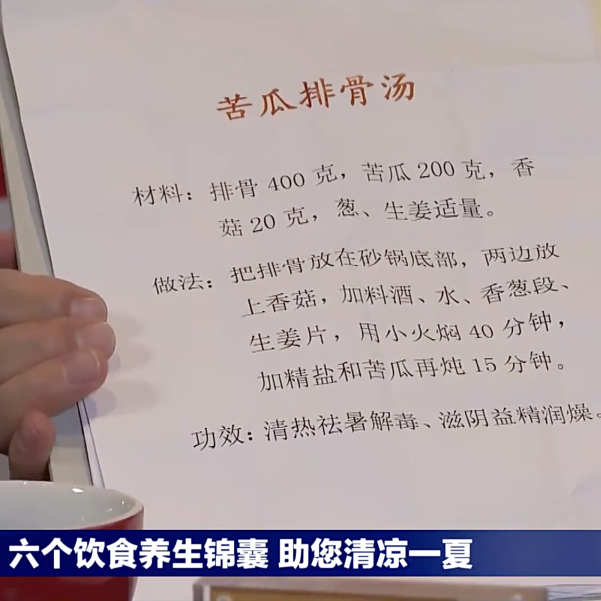 苦瓜排骨汤
材料：排骨 400 克，苦瓜 200 克，香
菇 20 克，葱、生姜适量。
做法：把排骨放在砂锅底部，两边放
上香菇，加料酒、水、香葱段、
生姜片，用小火焖 40 分钟，
加精盐和苦瓜再炖 15 分钟。
功效：清热祛暑解毒、滋阴益精润燥。
六个饮食养生锦囊 助您清凉一夏